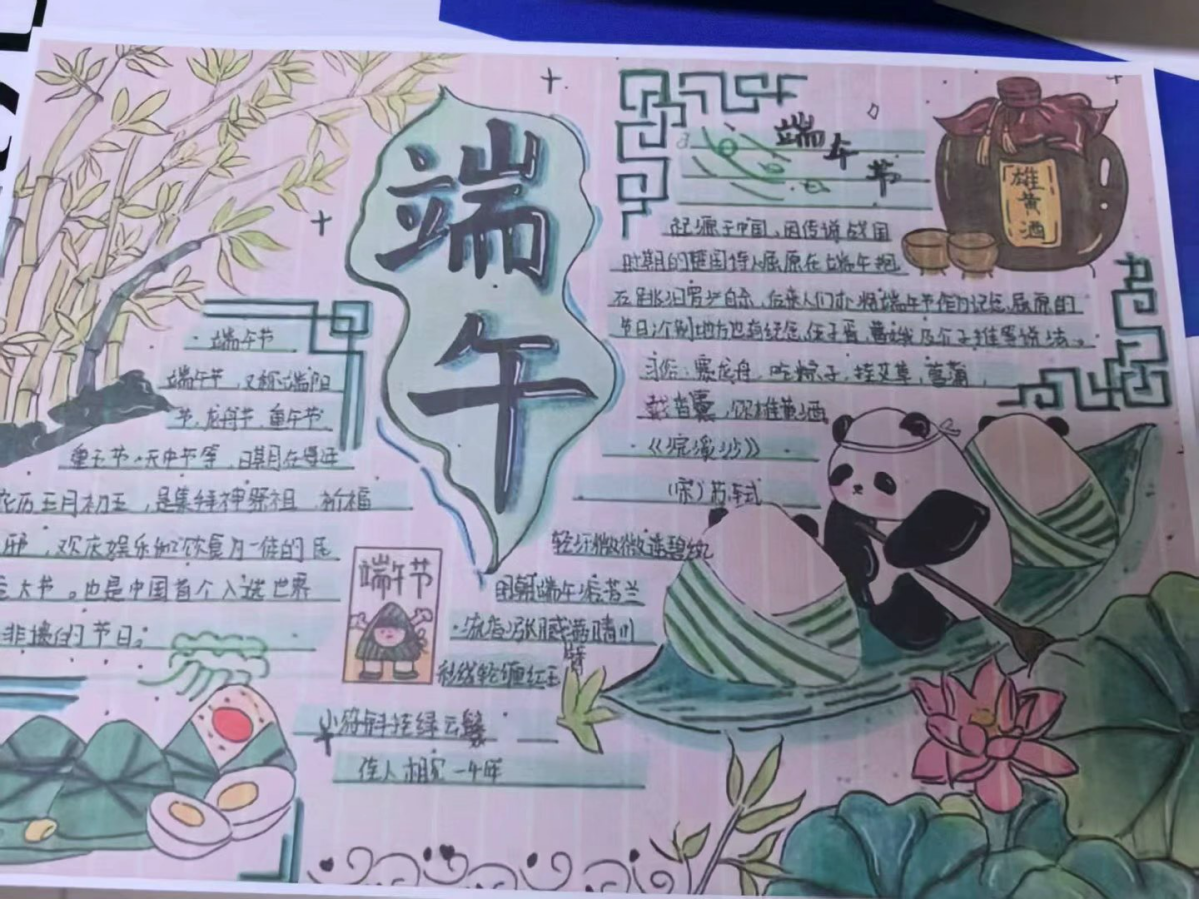 端午
端午节
端午节，又称端阳
节，龙舟节，重午节
重五节，天中节等，日期在每年
农历五月初五，是集拜神祭祖、祈福
辟邪，欢庆娱乐和饮食为一体的民
俗大节。也是中国首个入选世界
非遗的节日。
端午节
起源于中国，因传说战国
时期的楚国诗人屈原在端午抱
石跳汨罗江自尽，后来人们亦将端午节作为纪念屈原的
节日，个别地方也有纪念伍子胥、曹娥及介子推等说法。
习俗：赛龙舟，吃粽子，挂艾草，菖蒲，
戴香囊，饮雄黄酒
·《浣溪沙》
（宋）苏轼
轻汗微微透碧纨
明朝端午浴芳兰
流香涨腻满晴川
彩线轻缠红玉臂
小符斜挂绿云鬟
佳人相见一千年
雄黄酒
端午节